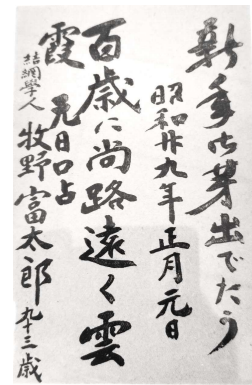 新年御芽出でたう
昭和廿九年正月元日
百歳に尚路遠く雲
霞
元日口占
結網學人 牧野富太郎 九十三歳